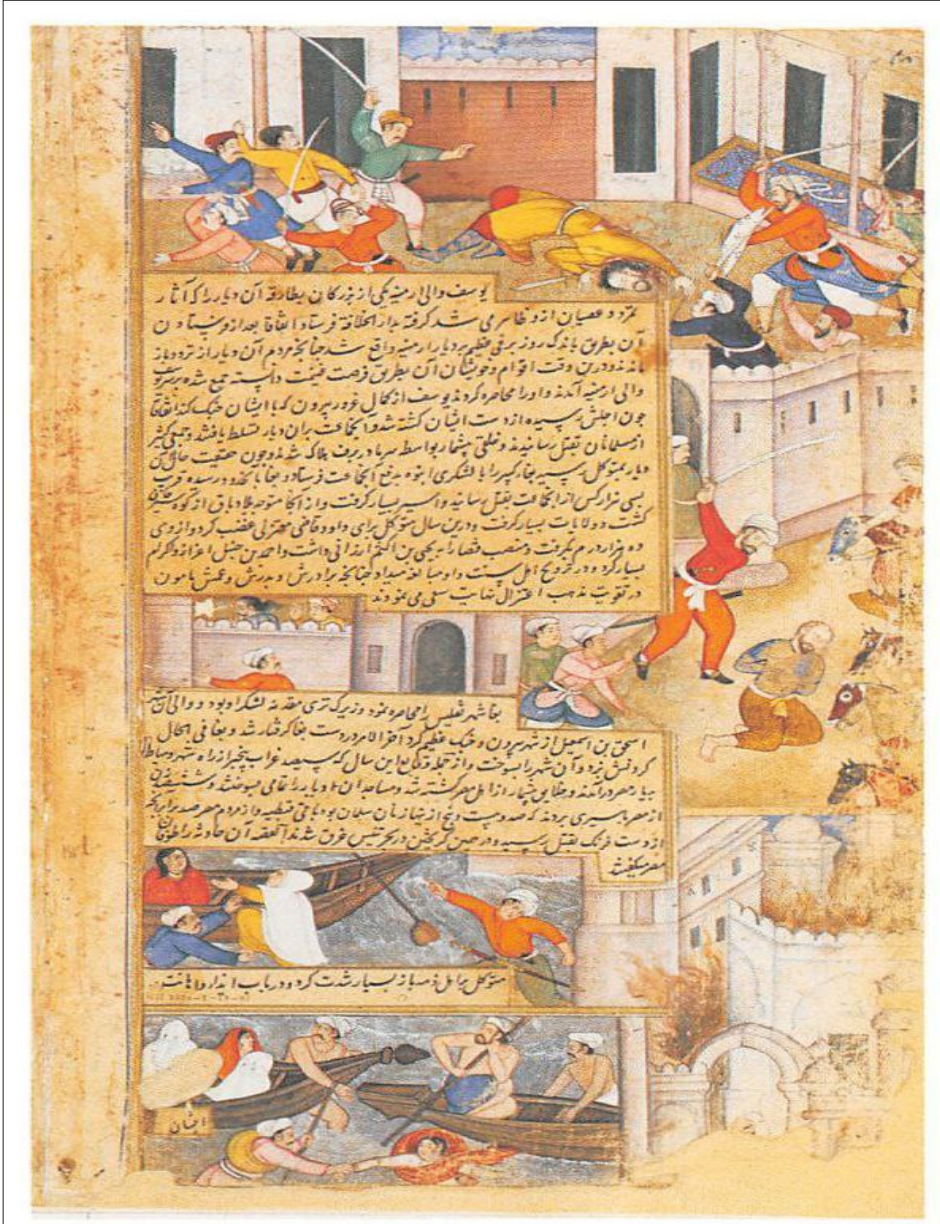 یوسف والی ارمنیه یکی از بزرکان بطارقه آن دیار را که آثار
تمرد و عصیان ازو ظاهر می شد کرفته بدار الخلافة فرستاد اتفاقا بعد از فرستادن
آن بطریق باندک روز برفی عظیم بر دیار ارمنیه واقع شد چنانچه مردم آن دیار از تردد باز
ماندند و درین وقت اقوام و خویشان آن بطریق فرصت غنیمت دانسته جمع شده بر سر یوسف
والی ارمنیه آمدند و او را محاصره کردند یوسف از کمال غرور بیرون آمد با ایشان جنک کند اتفاقا
چون اجلش رسیده از دست ایشان کشته شد و آنجماعت بران دیار تسلط یافتند و جمعی کثیر
از مسلمانان بقتل رسانیدند و خلقی بیشمار بواسطه سرما و برف هلاک شدند و چون حقیقت حال این
دیار بمتوکل رسید بغاء کبیر را با لشکری انبوه بدفع آنجماعت فرستاد و بغا بآنحدود رسیده قریب
سی هزار کس از آنجماعت بقتل رسانید و اسیر بسیار کرفت و از آنجا متوجه بلاد
کشت و ولایات بسیار کرفت و درین سال متوکل برای داود قاضی معتزلی غضب کرد و از وی
ده هزار درم بکرفت و منصب قضا را به یحیی بن اکثم ارزانی داشت و احمد بن حنبل اعزاز و اکرام
بسیار کرد و در ترویج اهل سنت داد مبالغه میداد چنانچه برادرش و پدرش و عمش مامون
در تقویت مذهب اعتزال نهایت سعی می نمودند
بغا شهر تفلیس را محاصره نمود و زیرک ترکی مقدمه لشکر او بود و والی آن شهر
اسحق بن اسمعیل از شهر بیرون و جنک عظیم کرد آخر الامر در دست بغا کرفتار شد و بغا فی الحال
کردنش بزد و آن شهر را بسوخت و از جمله وقایع این سال که سیصد غراب بیخبر از راه شهر دمیاط
بدیار مصر در آمدند و خلایق بیشمار از اهل مصر کشته شد و مساجد آن دیار را تمامی بسوختند و
از مصر باسیری بردند که صد و بیست و پنج از زنان مسلمان بود باقی قبطیه و از مردم مصر
از دست فرنک بقتل رسیده و در حین کریختن در بحر تنیس غرق شدند القصه آن حادثه را طوفان
مصر میکفتند
متوکل بر اهل ذمه باز بسیار شدت کرد و در باب انذار و اهانت
ایشان